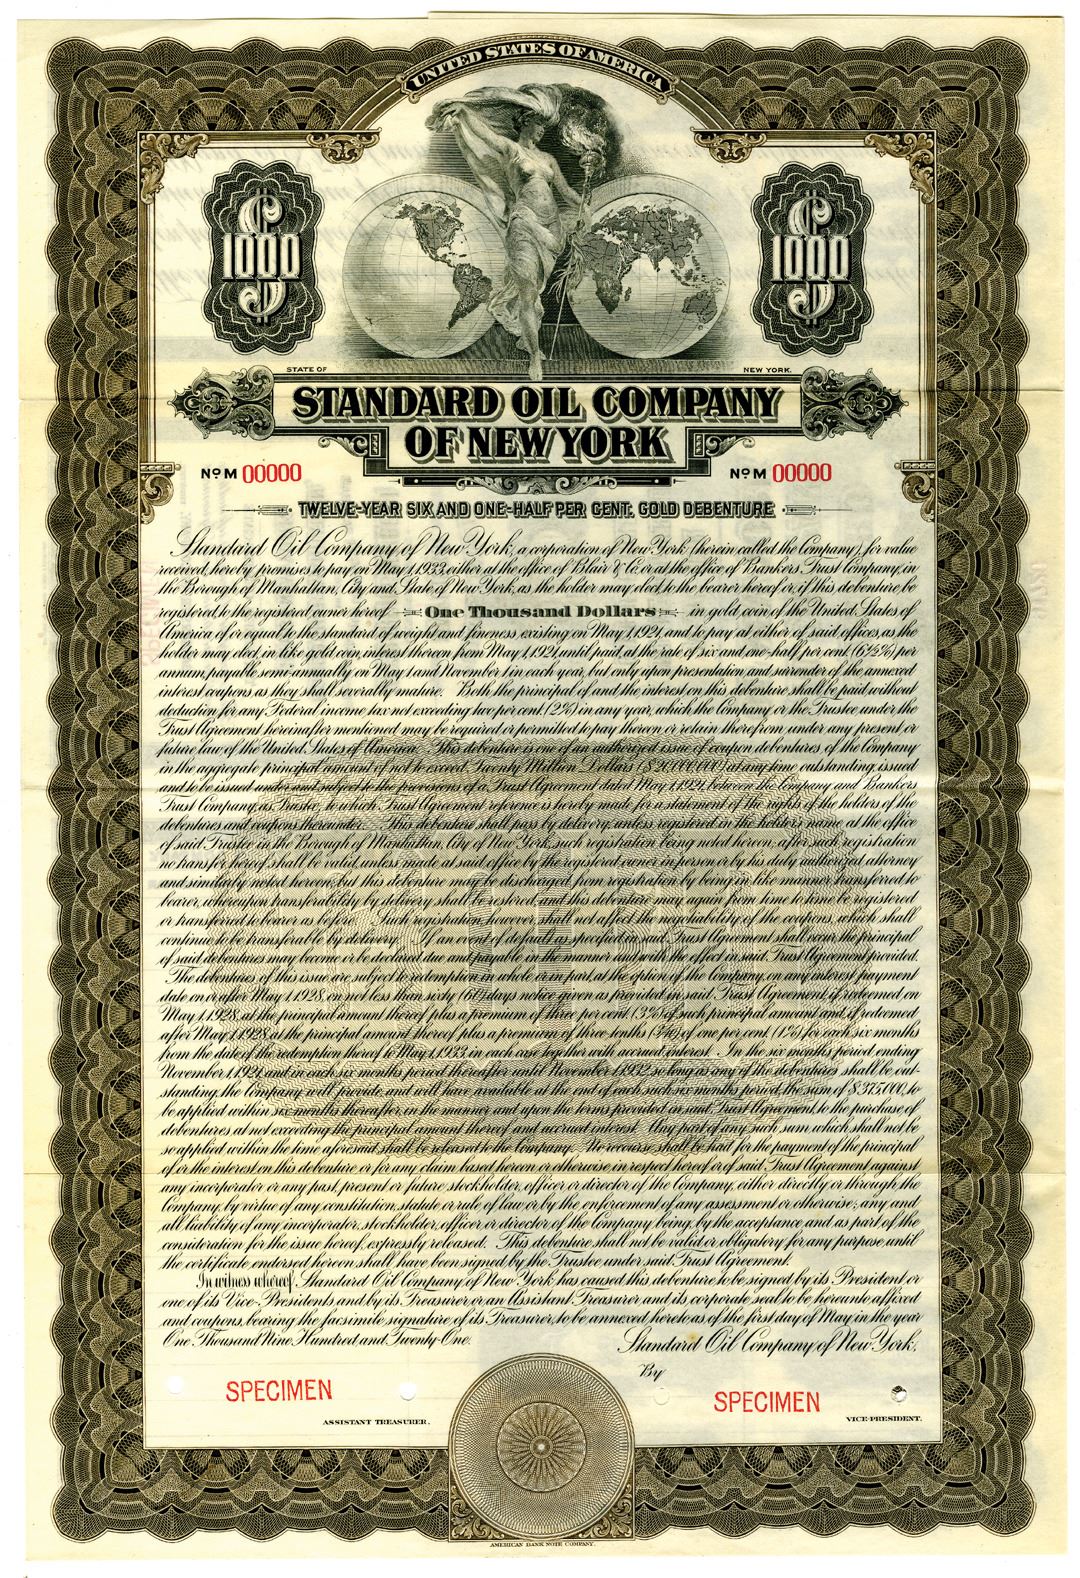 UNITED STATES OF AMERICA
$ 1000
$ 1000
STATE OF
NEW YORK.
STANDARD OIL COMPANY
OF NEW YORK
No M 00000
No M 00000
TWELVE-YEAR SIX AND ONE-HALF PER CENT. GOLD DEBENTURE
Standard Oil Company of New York, a corporation of New York (herein called the Company), for value
received, hereby promises to pay on May 1, 1933, either at the office of Blair & Co. or at the office of Bankers Trust Company, in
the Borough of Manhattan, City and State of New York, as the holder may elect, to the bearer hereof, or, if this debenture be
registered to the registered owner hereof One Thousand Dollars in gold coin of the United States of
America of or equal to the standard of weight and fineness existing on May 1, 1921, and to pay at either of said offices, as the
holder may elect, in like gold coin, interest thereon from May 1, 1921, until paid, at the rate of six and one-half per cent. (6½%) per
annum, payable semi-annually on May 1 and November 1 in each year, but only upon presentation and surrender of the annexed
interest coupons as they shall severally mature. Both the principal of and the interest on this debenture shall be paid without
deduction for any Federal income tax not exceeding two per cent. (2%) in any year, which the Company or the Trustee under the
Trust Agreement hereinafter mentioned may be required or permitted to pay thereon or retain therefrom under any present or
future law of the United States of America. This debenture is one of an authorized issue of coupon debentures of the Company
in the aggregate principal amount of not to exceed Twenty Million Dollars ($20,000,000) at any time outstanding, issued
and to be issued under and subject to the provisions of a Trust Agreement dated May 1, 1921, between the Company and Bankers
Trust Company, as Trustee, to which Trust Agreement reference is hereby made for a statement of the rights of the holders of the
debentures and coupons thereunder. This debenture shall pass by delivery, unless registered in the holder's name at the office
of said Trustee in the Borough of Manhattan, City of New York, such registration being noted hereon, after such registration
no transfer hereof shall be valid, unless made at said office by the registered owner in person or by his duly authorized attorney
and similarly noted hereon; but this debenture may be discharged from registration by being in like manner transferred to
bearer, whereupon transferability by delivery shall be restored, and this debenture may again from time to time be registered
or transferred to bearer as before. Such registration, however, shall not affect the negotiability of the coupons, which shall
continue to be transferable by delivery. If an event of default as specified in said Trust Agreement shall occur, the principal
of said debentures may become or be declared due and payable in the manner and with the effect in said Trust Agreement provided.
The debentures of this issue are subject to redemption in whole or in part, at the option of the Company, on any interest payment
date on or after May 1, 1928, on not less than sixty (60) days notice given as provided in said Trust Agreement, if redeemed on
May 1, 1928, at the principal amount thereof plus a premium of three per cent. (3%) of such principal amount and, if redeemed
after May 1, 1928, at the principal amount thereof plus a premium of three-tenths (3/10) of one per cent. (1%) for each six months
from the date of the redemption thereof to May 1, 1933, in each case together with accrued interest. In the six months period ending
November 1, 1921, and in each six months period thereafter until November 1, 1932, so long as any of the debentures shall be out-
standing, the Company will provide, and will have available at the end of each such six months period, the sum of $375,000, to
be applied within six months thereafter, in the manner and upon the terms provided in said Trust Agreement, to the purchase of
debentures, at not exceeding the principal amount thereof and accrued interest. Any part of any such sum which shall not be
so applied within the time aforesaid shall be released to the Company. No recourse shall be had for the payment of the principal
of or the interest on this debenture or for any claim based hereon or otherwise, in respect hereof or of said Trust Agreement against
any incorporator or any past, present or future, stockholder, officer or director of the Company, either directly or through the
Company, by virtue of any constitution, statute or rule of law or by the enforcement of any assessment or otherwise; any and
all liability of any incorporator, stockholder, officer or director of the Company being, by the acceptance and as part of the
consideration for the issue hereof, expressly released. This debenture shall not be valid or obligatory for any purpose, until
the certificate endorsed hereon shall have been signed by the Trustee under said Trust Agreement.
In witness whereof, Standard Oil Company of New York has caused this debenture to be signed by its President or
one of its Vice-Presidents and by its Treasurer or an Assistant Treasurer and its corporate seal to be hereunto affixed
and coupons, bearing the facsimile signature of its Treasurer, to be annexed hereto as of the first day of May in the year
One Thousand Nine Hundred and Twenty-One.
Standard Oil Company of New York,
By
SPECIMEN
SPECIMEN
ASSISTANT TREASURER.
VICE-PRESIDENT.
AMERICAN BANK NOTE COMPANY.